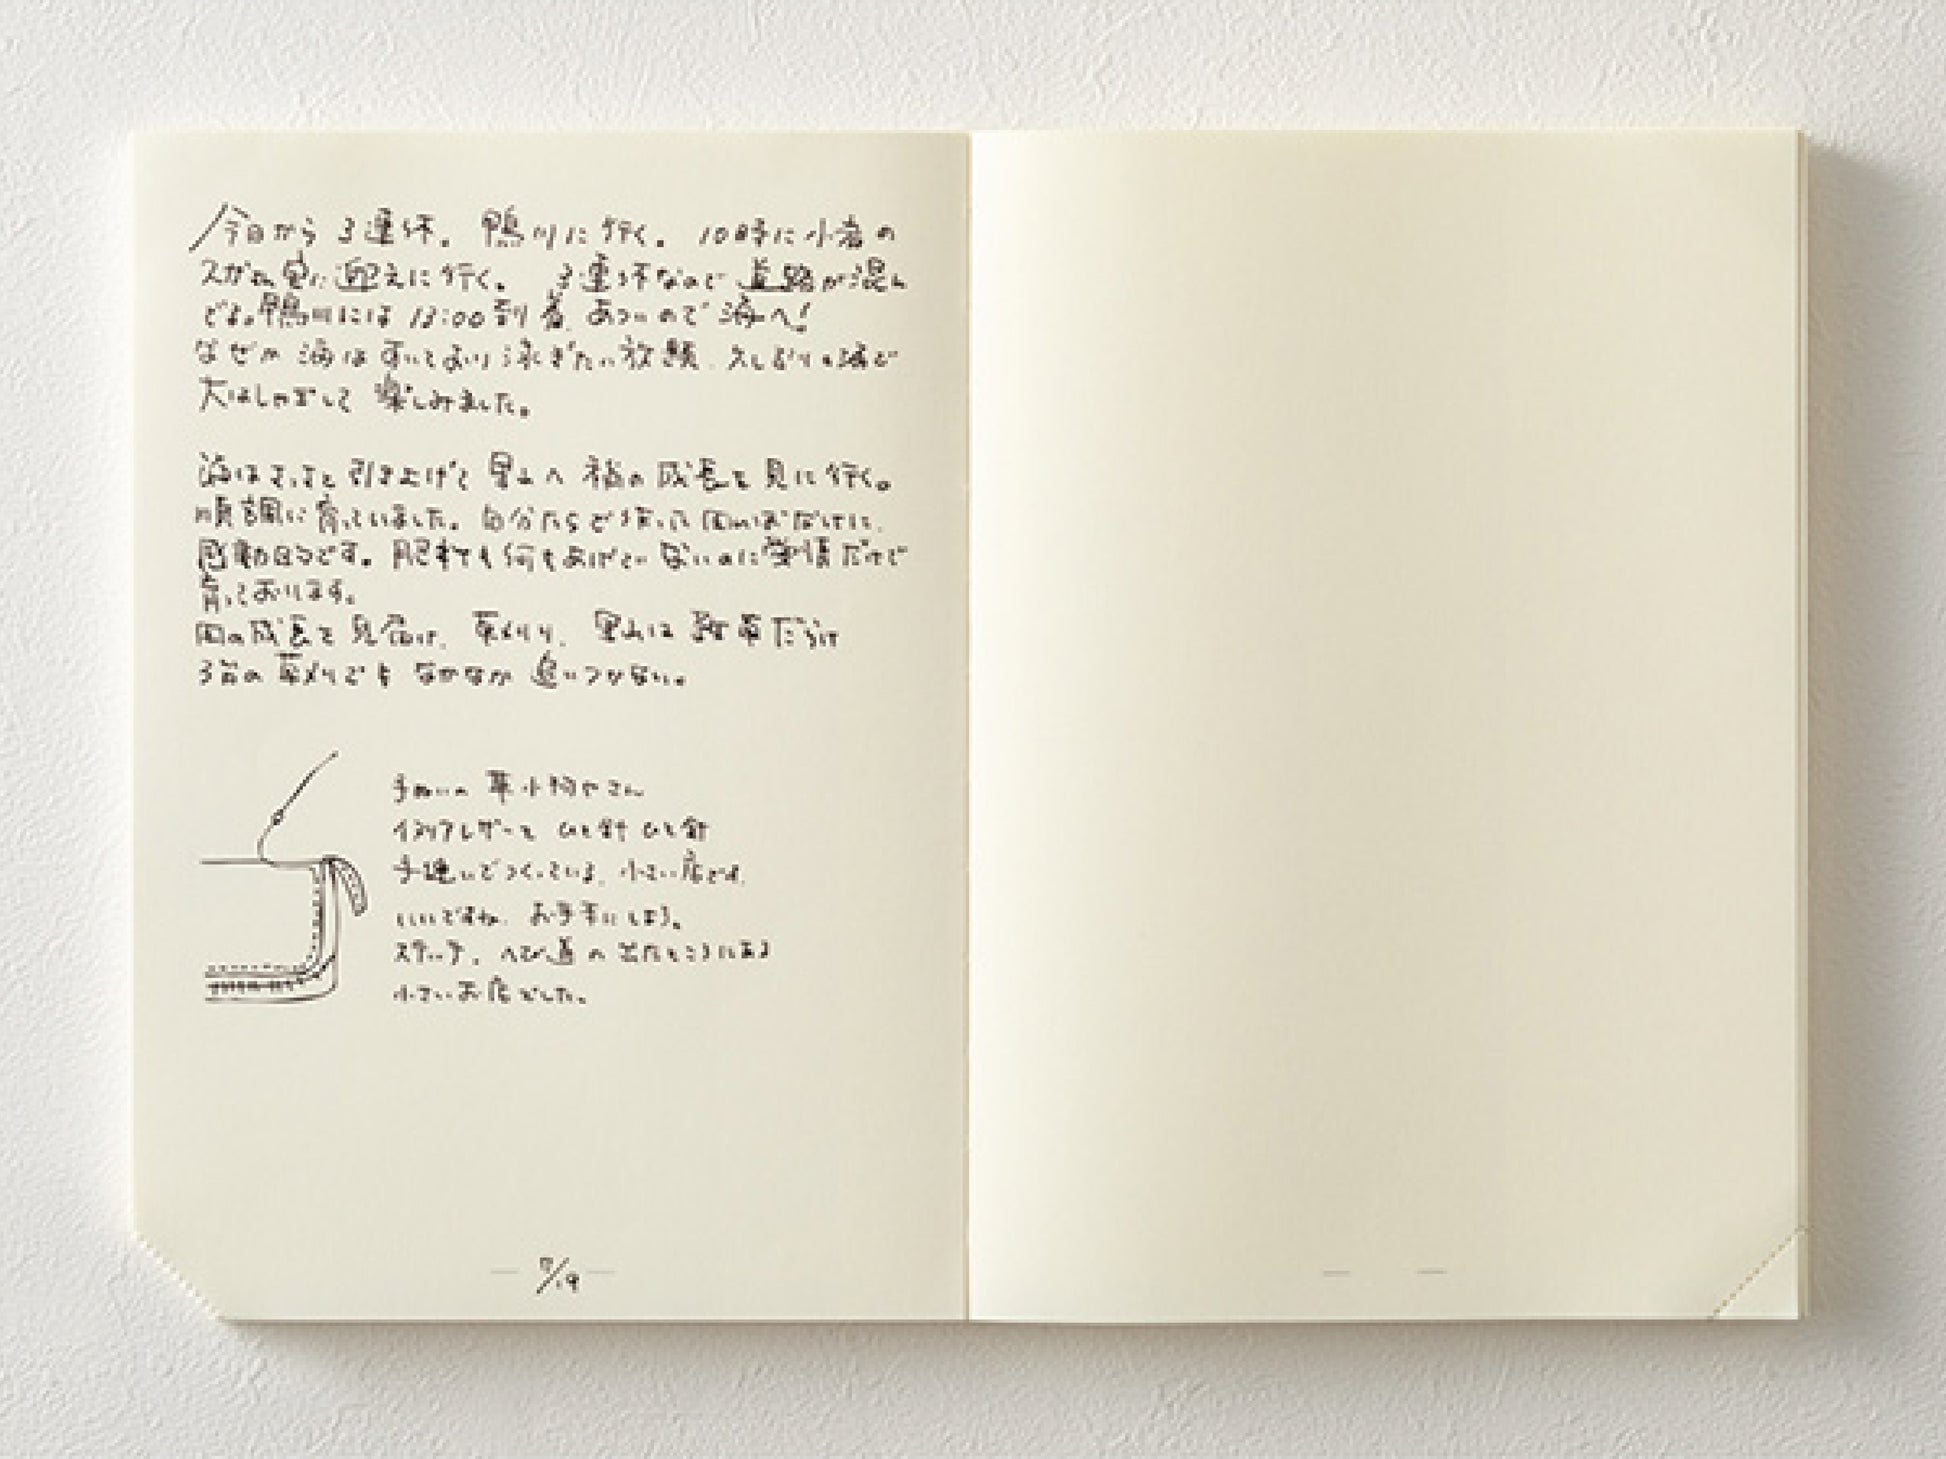 今日から3連休。鴨川に行く。10時に小岩の
迎えに行く。3連休なので道路が混ん
でる。鴨川には13:00到着。あついので海へ!
なぜか海はすいており泳ぎたい放題。久しぶりの海で
大はしゃぎして楽しみました。
海はさっさと引き上げて里山へ稲の成長を見に行く。
順調に育っていました。自分たちで作った田んぼだけに、
感動的です。肥料も何もあげていないのに愛情だけで
育っております。
田の成長を見届け、草刈り。里山は雑草だらけ
3台の草刈りでもなかなか追いつかない。
手ぬいの革小物やさん
イタリアレザーを ひと針ひと針
手縫いでつくっている、小さい店です。
いいですね。お手本にしよう。
ステッチ。へび道の出たところにある
小さいお店でした。
7/19